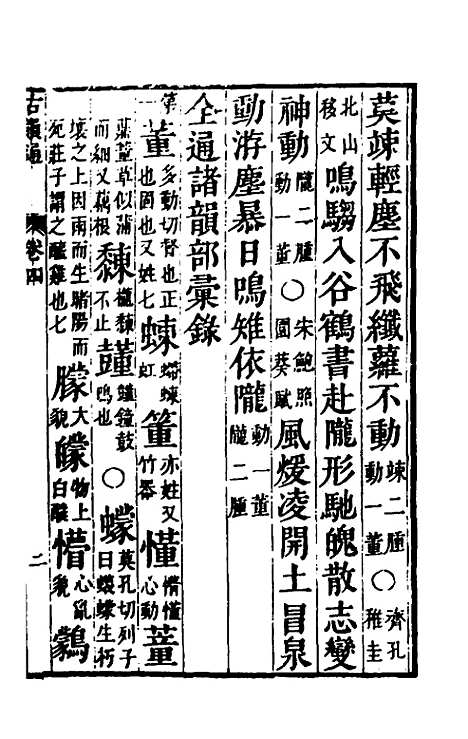 莫疎輕塵不飛纖蘿不動疎二腫動一董○齊孔稚圭
北山移文鳴騶入谷鶴書赴隴形馳魄散志變
神動隴二腫動一董○宋鮑照園葵賦風煖凌開土冒泉
動游塵暴日鳴雉依隴動一董隴二腫
全通諸韻部彙錄
第一董多動切督也正也固也又姓七蝀螮蝀虹䈏竹器亦姓又懂懵懂心動蕫
蕫草似蒲而細又藕根䵔儱䵔不止鼓鳴也○蠓莫孔切列子曰蠛蠓生朽
壤之上因雨而生睹陽而死莊子謂之醯雞也七朦大貌醭物上白懵心亂貌鸏
古韻通
卷四
二